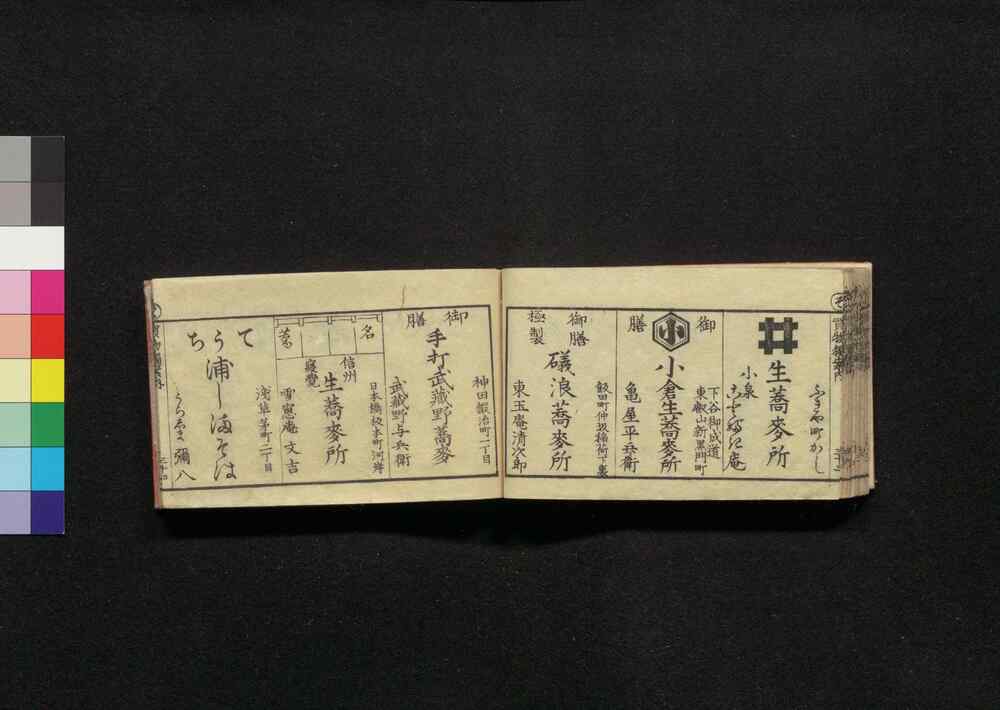 ふきや町かし
生蕎麦所
小泉
庵
御膳
小
下谷御成道
東叡山新黒門町
小倉生蕎麦所
亀屋平兵衛
御膳
極製
飯田町仲坂稲荷下裏
礒浪蕎麦所
東玉庵清次郎
御膳
神田鍛冶町二丁目
手打武蔵野蕎麦
武蔵野与兵衛
名
日本橋
本町河岸
信州
寝覚
生蕎麦所
雪窓庵文吉
浅草茅町二丁目
てうち
浦しまそば
うらしま彌八